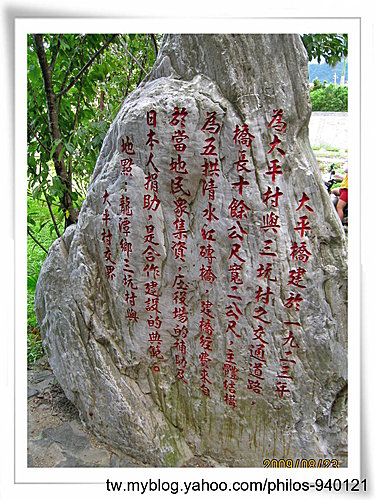 大平橋建於一九二三年
為大平村與三坑村之交通道路，
橋長十餘公尺寬二公尺，主體結構
為五拱清水紅磚橋，建橋經費來自
於當地民眾集資，庄役場的補助及
日本人捐助，是合作建設的典範。
地點：龍潭鄉三坑村與
大平村交界
2009/08/23
tw.myblog.yahoo.com/philos-940121